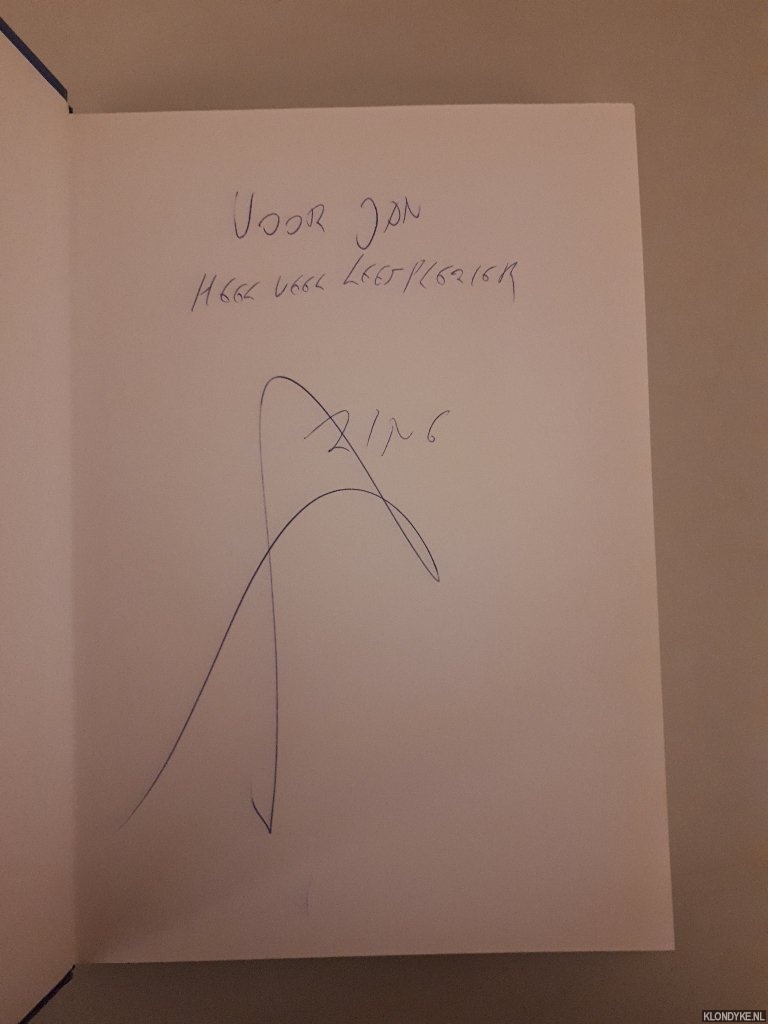 VOOR JAN
HEEL VEEL LEESPLEZIER
AZING
KLONDYKE.NL